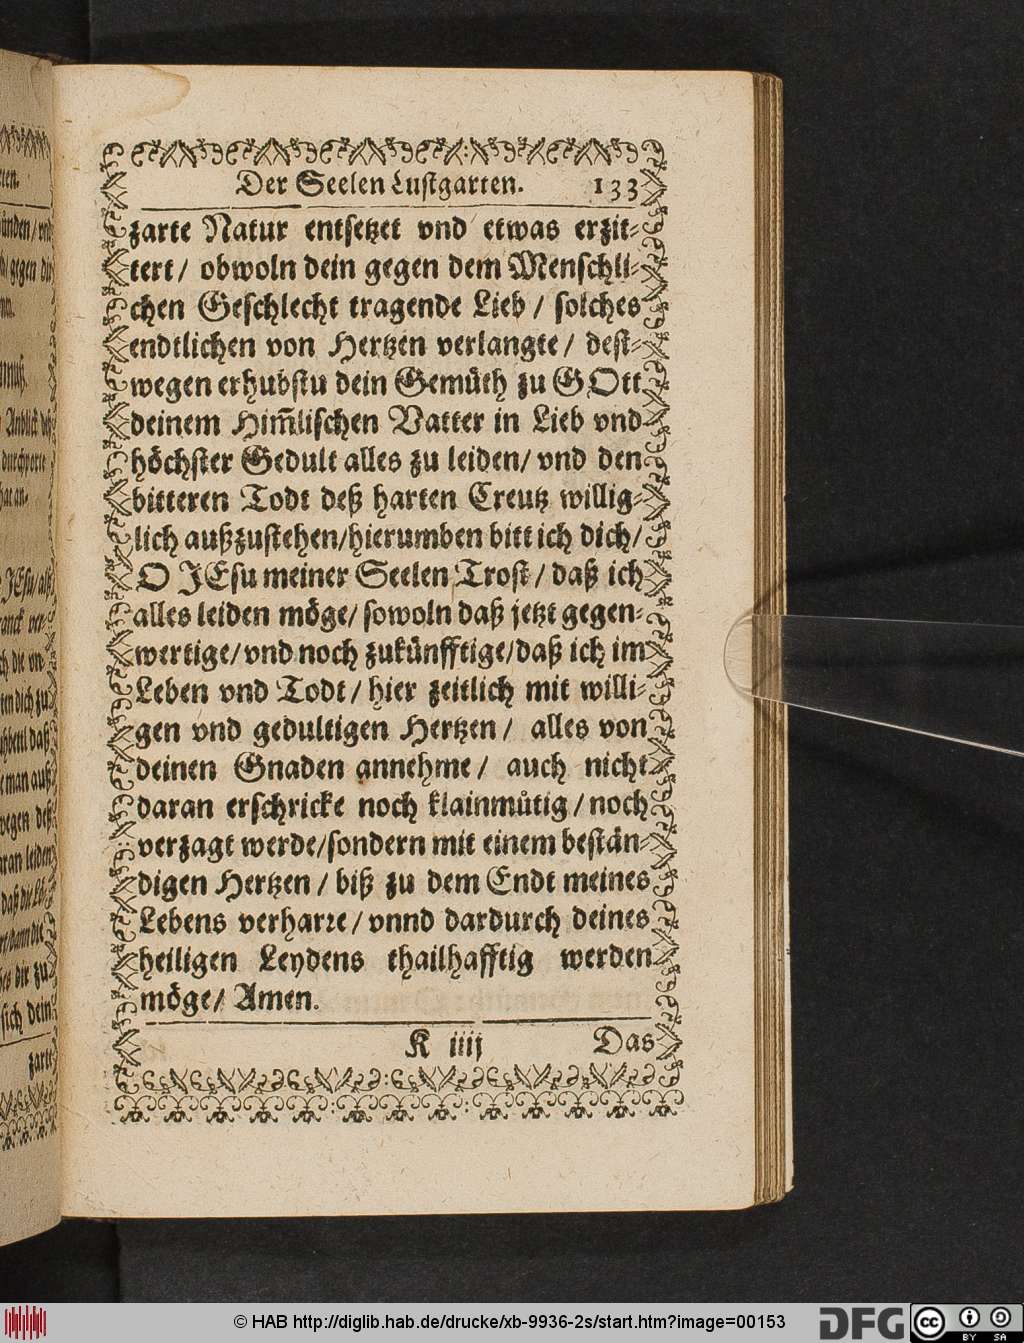 Der Seelen Lustgarten. 133
zarte Natur entsetzet vnd etwas erzit⸗
tert / obwoln dein gegen dem Menschli⸗
chen Geschlecht tragende Lieb / solches
endtlichen von Hertzen verlangte / dest⸗
wegen erhubstu dein Gemüth zu GOtt
deinem Him̃lischen Vatter in Lieb vnd
höchster Gedult alles zu leiden / vnd den
bitteren Todt deß harten Creutz willig⸗
lich außzustehen / hierumben bitt ich dich /
O JEsu meiner Seelen Trost / daß ich
alles leiden möge / sowoln daß jetzt gegen⸗
wertige / vnd noch zukünfftige / daß ich im
Leben vnd Todt / hier zeitlich mit willi⸗
gen vnd gedultigen Hertzen / alles von
deinen Gnaden annehme / auch nicht
daran erschricke noch klainmütig / noch
verzagt werde / sondern mit einem bestän⸗
digen Hertzen / biß zu dem Endt meines
Lebens verharre / vnnd dardurch deines
heiligen Leydens thailhafftig werden
möge / Amen.
K iiij Das
© HAB http://diglib.hab.de/drucke/xb-9936-2s/start.htm?image=00153
DFG
cc BY SA